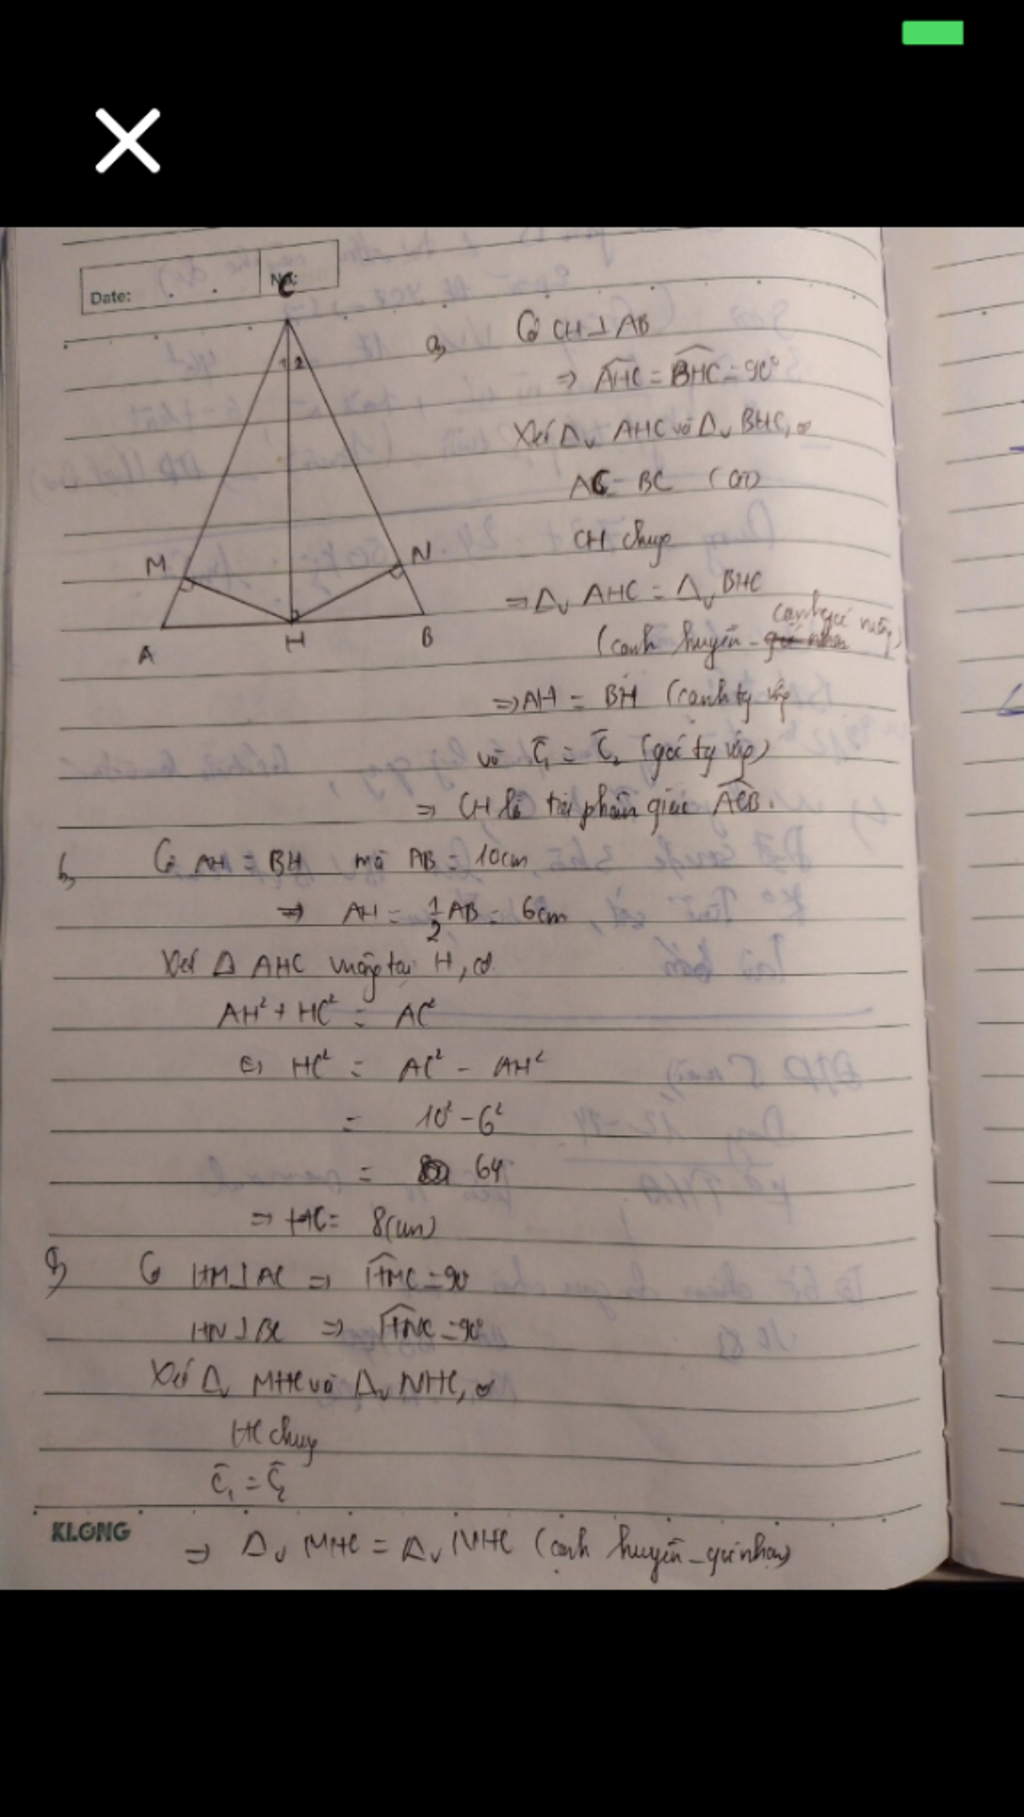 Date:
No:
C
1 2
M
N
A
H
B
a, Có CH⊥AB
⇒ AHC = BHC = 90°
Xét Δv AHC và Δv BHC, có
AC = BC (GT)
CH chung
⇒ Δv AHC = Δv BHC
(cạnh huyền - cạnh góc vuông)
⇒ AH = BH (cạnh tg ứng
và C₁ = C₂ (góc tg ứng)
⇒ CH là tia phân giác ACB.
b, Có AH = BH mà AB = 10cm
⇒ AH = 1/2 AB = 6cm
Xét Δ AHC vuông tại H, có
AH² + HC² = AC²
⇔ HC² = AC² - AH²
= 10² - 6²
= 64
⇒ HC = 8(cm)
Có HM⊥AC ⇒ HMC = 90
HN⊥BC ⇒ HNC = 90°
Xét Δv MHC và Δv NHC, có
HC chung
C₁ = C₂
KLONG
⇒ Δv MHC = Δv NHC (cạnh huyền - góc nhọn)